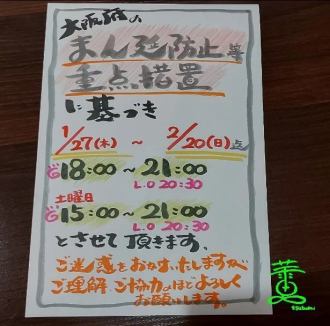 大阪府の
まん延防止等
重点措置
に基づき
1/27(木) ～ 2/20(日)迄
18:00～21:00
L.O 20:30
土曜日
15:00～21:00
L.O 20:30
とさせて頂きます。
ご迷惑をおかけいたしますが
ご理解 ご協力のほどよろしく
お願いします。